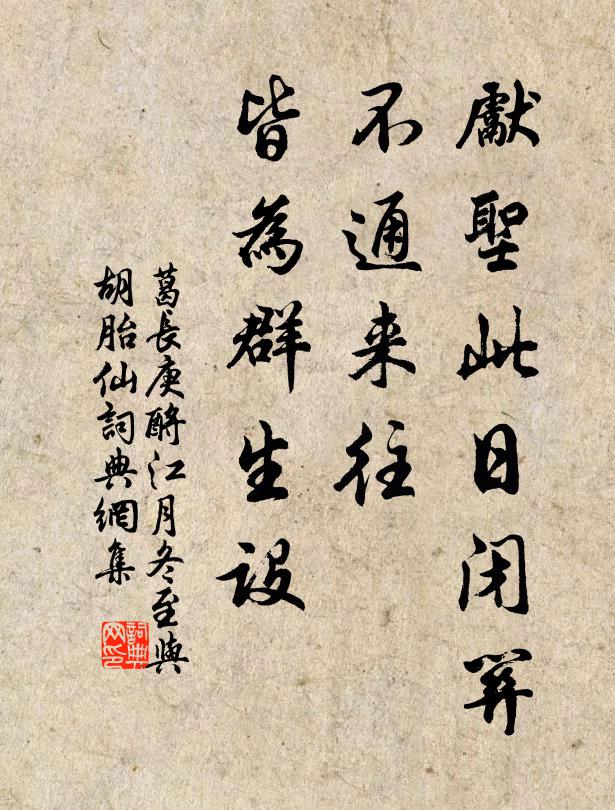 獻聖此日閉關
不通来往
皆為群生設
葛長庚酹江月冬至與
胡胎仙詞典網集
詞典
网印